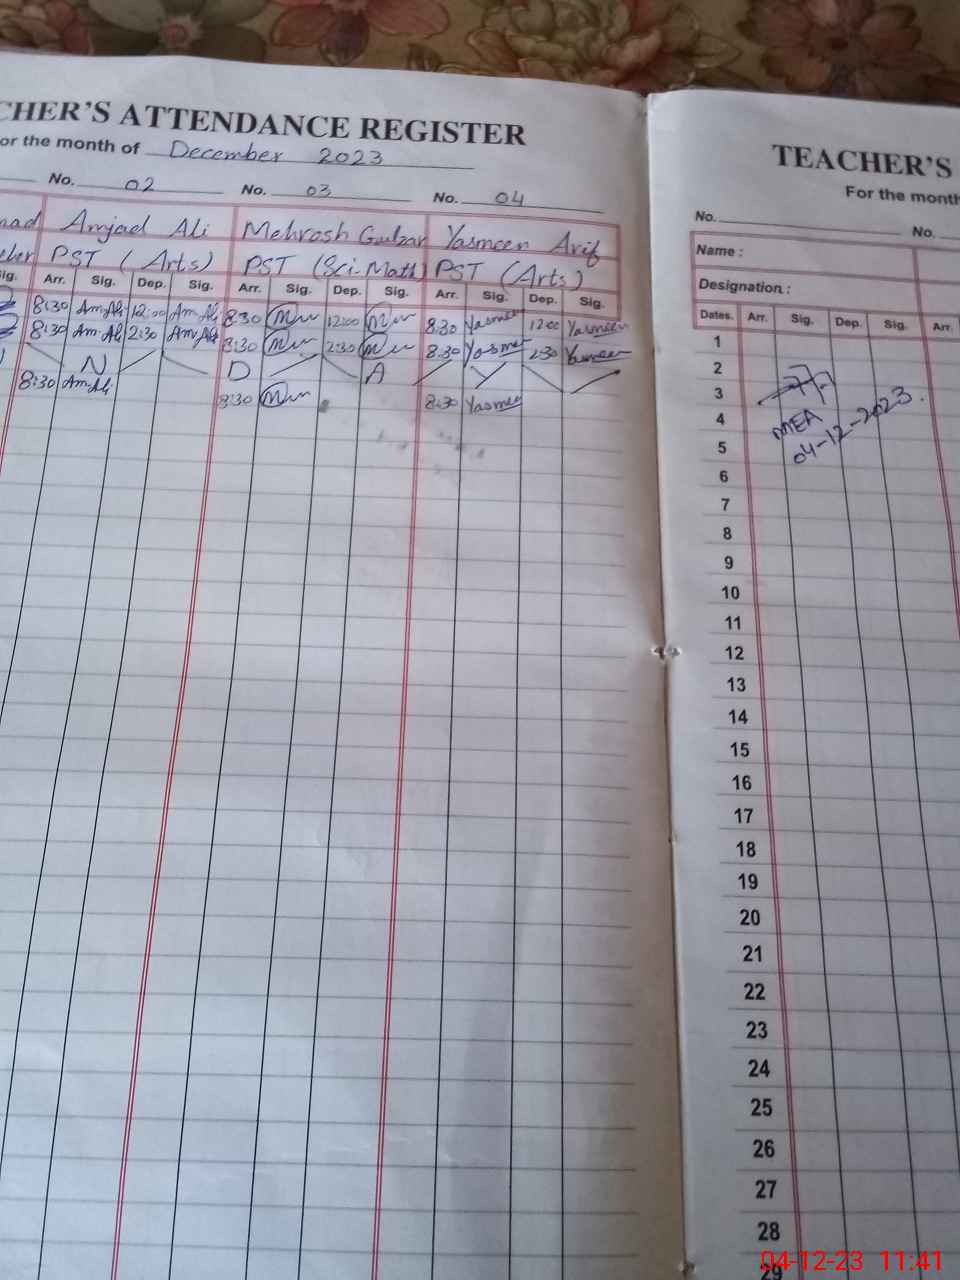 CHER'S ATTENDANCE REGISTER
or the month of December 2023
No. 02 No. 03 No. 04
mad Amjad Ali Mehrosh Gulzar Yasmeen Arif
PST (Arts) PST (Sci-Math) PST (Arts)
ig. Arr. Sig. Dep. Sig. Arr. Sig. Dep. Sig. Arr. Sig. Dep. Sig.
8:30 Am Ali 12:00 Am Ali 8:30 12:00 8:30 Yasmeen 12:00 Yasmeen
8:30 Am Ali 2:30 Am Ali 8:30 2:30 8:30 Yasmeen 2:30 Yasmeen
N D A Y
8:30 Am Ali 8:30 8:30 Yasmeen
TEACHER'S
For the month
No. No.
Name :
Designation :
Dates. Arr. Sig. Dep. Sig. Arr.
1
2
3
4
MEA
04-12-2023.
5
6
7
8
9
10
11
12
13
14
15
16
17
18
19
20
21
22
23
24
25
26
27
28
29
04-12-23 11:41